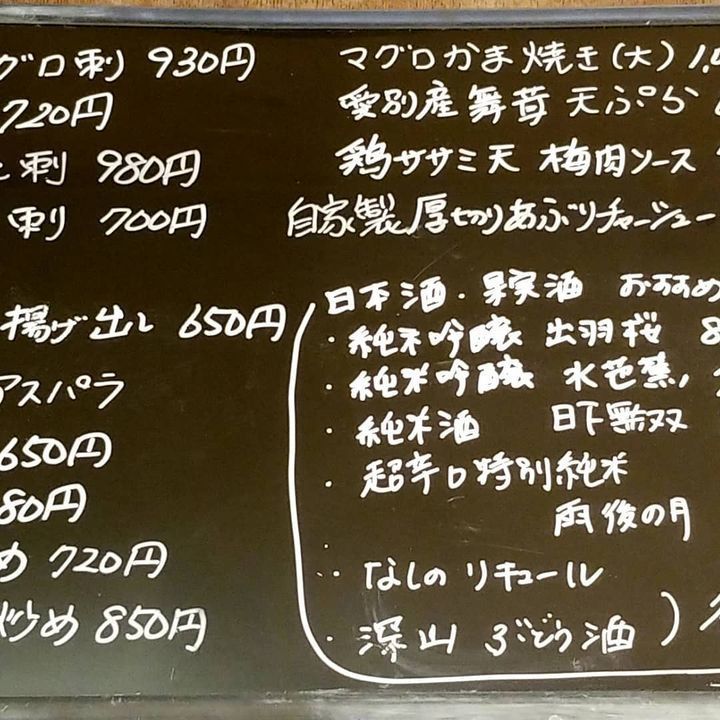 グロ刺 930円
720円
刺 980円
刺 700円
揚げ出し 650円
アスパラ
650円
80円
め 720円
炒め 850円
マグロかま焼き(大) 1,4
愛別産舞茸 天ぷら
鶏ササミ天 梅肉ソース
自家製厚切りあぶりチャーシュー
日本酒・果実酒 おすすめ
・純米吟醸 出羽桜 8
・純米吟醸 水芭蕉
・純米酒 日下無双
・超辛口特別純米
雨後の月
・なしのリキュール
・深山 ぶどう酒